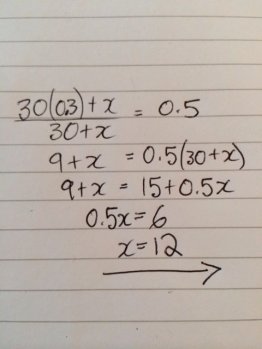 30(0.3)+x
30+x = 0.5
9+x = 0.5(30+x)
9+x = 15+0.5x
0.5x=6
x=12